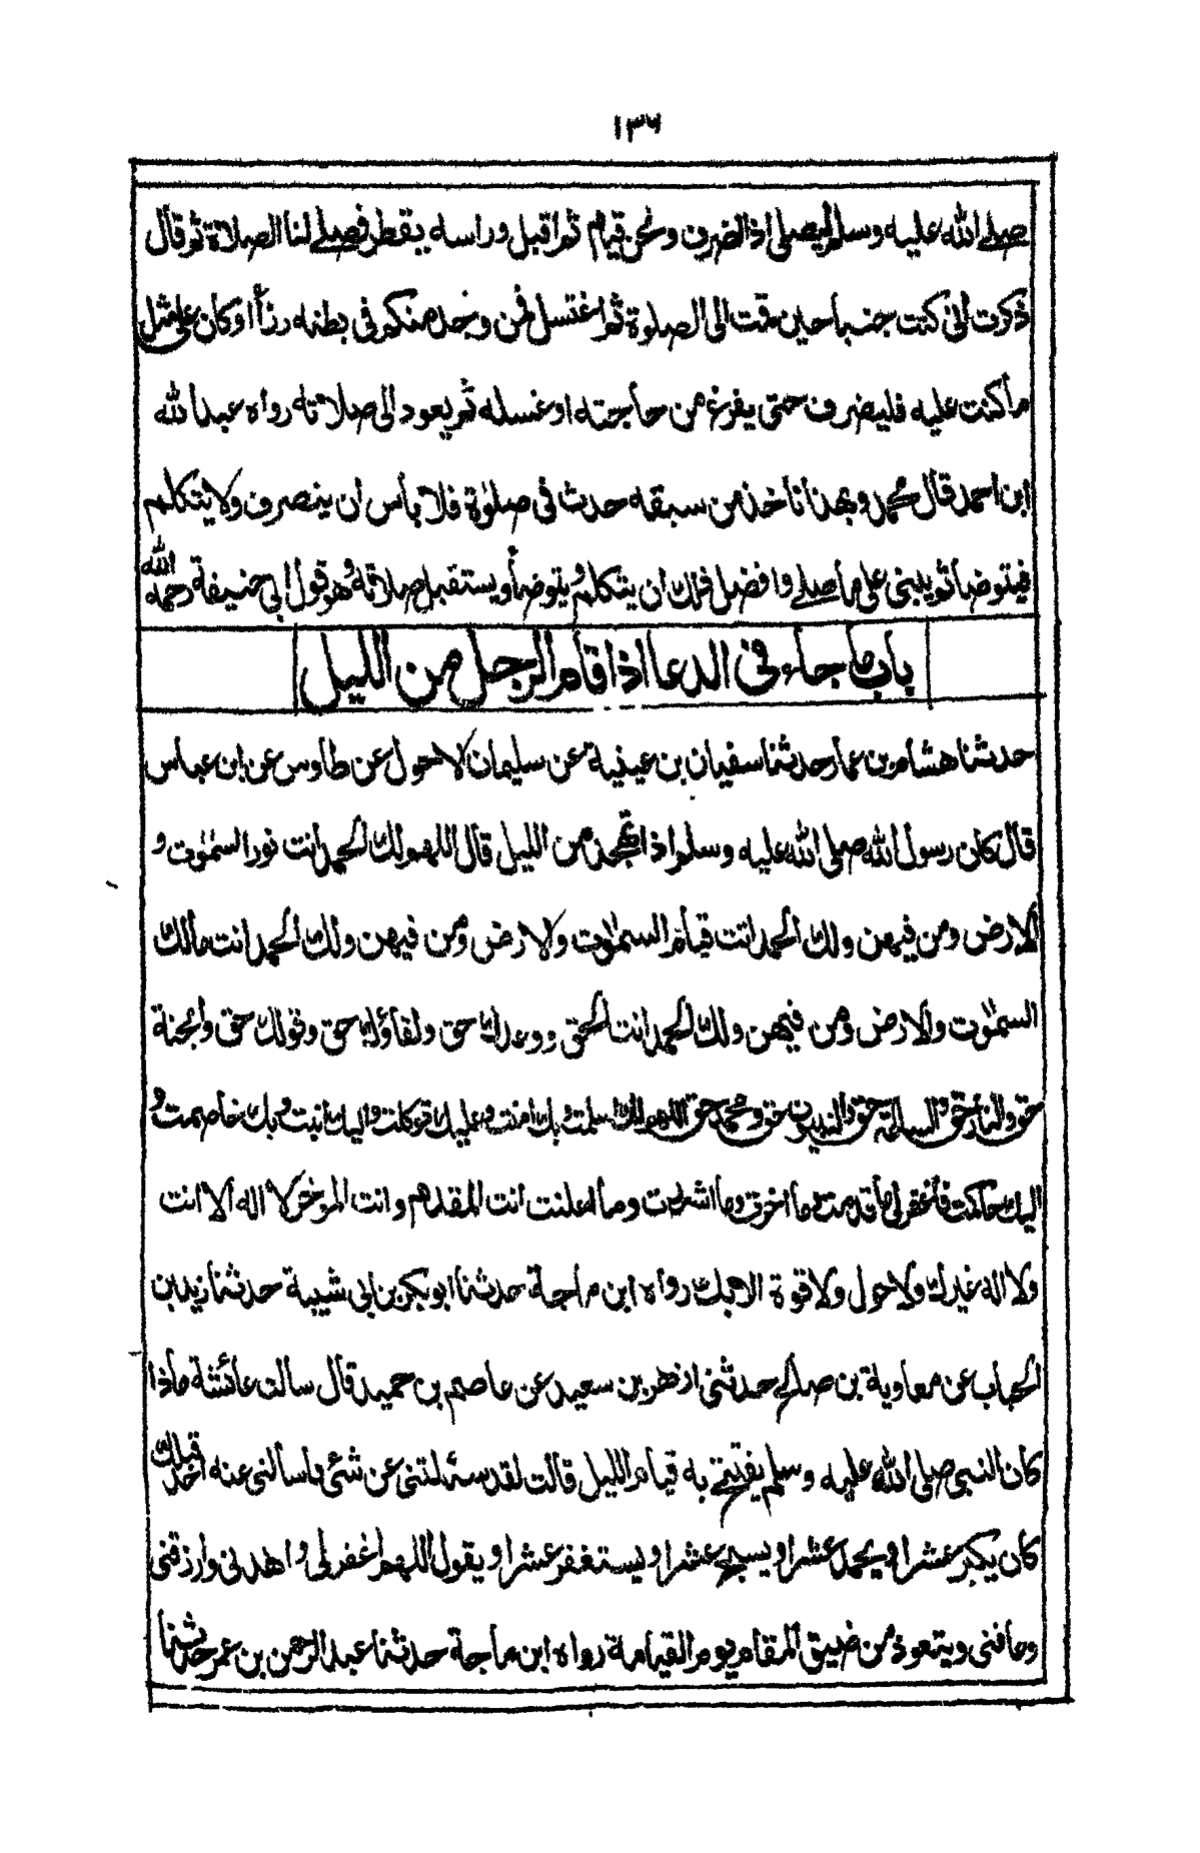 ١٣٦
صلى الله عليه وسلم يصلى اذ انصرف ونحن قيام ثم اقبل وراسه يقطر فصلى لنا الصلاة ثم قال
ذكرت انى كنت جنبا حين قمت الى الصلوة ثم اغتسل فمن وجد منكم فى بطنه رزأ او كان على مثل
ما كنت عليه فلينصرف حتى يفرغ من حاجته او غسله ثم يعود الى صلاته رواه عبد الله
ابن احمد قال محمد وبهذا ناخذ من سبقه حدث فى صلوٰة فلا بأس ان ينصرف ولا يتكلم
فيتوضأ ثم يبنى على ما صلى وافضل ذلك ان يتكلم ويتوضأ ويستقبل صلاته وهو قول ابى حنيفة رحمه الله
باب ما جاء فى الدعا اذا قام الرجل من الليل
حدثنا هشام بن عمار حدثنا سفيان بن عيينة عن سليمان لاحول عن طاوس عن ابن عباس
قال كان رسول الله صلى الله عليه وسلم اذا تهجد من الليل قال اللهم لك الحمد انت نور السمٰوٰت و
الارض ومن فيهن ولك الحمد انت قيام السمٰوٰت ولارض ومن فيهن ولك الحمد انت مالك
السمٰوٰت والارض ومن فيهن ولك الحمد انت الحق ووعدك حق ولقاؤك حق وقولك حق والجنة
حق والنار حق والساعة حق والنبيون حق ومحمد حق اللهم لك اسلمت وبك امنت وعليك توكلت واليك انبت وبك خاصمت و
اليك حاكمت فاغفرلى ما قدمت وما اخرت وما اسررت وما اعلنت انت المقدم وانت المؤخر لا اله الا انت
ولا اله غيرك ولا حول ولا قوة الا بك رواه ابن ماجة حدثنا ابو بكر بن ابى شيبة حدثنا زيد بن
الحباب عن معاوية بن صالح حدثنى ازهر بن سعيد عن عاصم بن حميد قال سالت عائشة ماذا
كان النبى صلى الله عليه وسلم يفتتح به قيام الليل قالت لقد سئلتنى عن شئ ما سالنى عنه احد قبلك
كان يكبر عشرا ويحمد عشرا ويسبح عشرا ويستغفر عشرا ويقول اللهم اغفر لى واهدنى وارزقنى
وعافنى ويتعوذ من ضيق المقام يوم القيامة رواه ابن ماجة حدثنا عبد الرحمن بن عمر حدثنا